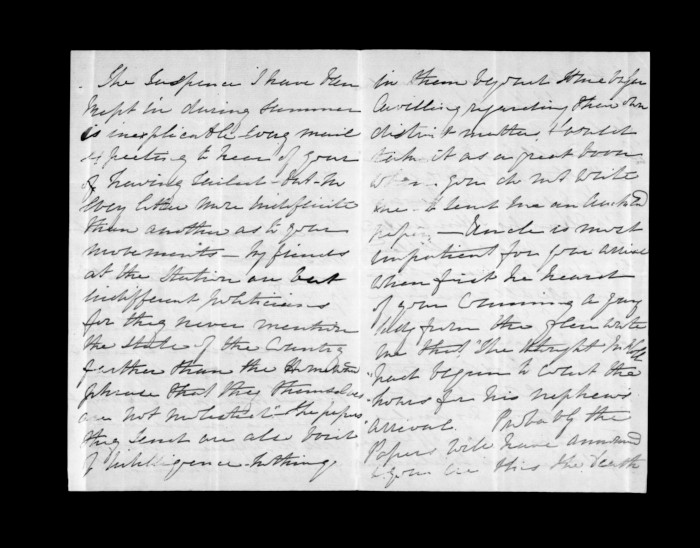 The Suspence I have been
kept in during summer
is inexplicable every mail
expecting to hear of your
of having Sailed - but - no
every letter more indefinite
than another as to your
movements - My friends
at the Station are but
indifferent politicians
for they never mention
the state of the Country
farther than the
phrase that they themselves
are not molested - the papers
they send are also void
of intelligence - nothing
in them beyond some
Cavilling regarding their own
district matters I would
take it as a great boon
when you do not write
me to send me an Auckland
paper — Uncle is most
impatient for your arrival
when first he heard
of your Comming a gay
lady from the glen wrote
me that the
had begun to count the
hours for his nephews
arrival. Probably the
Papers will have announced
to you ere this the death